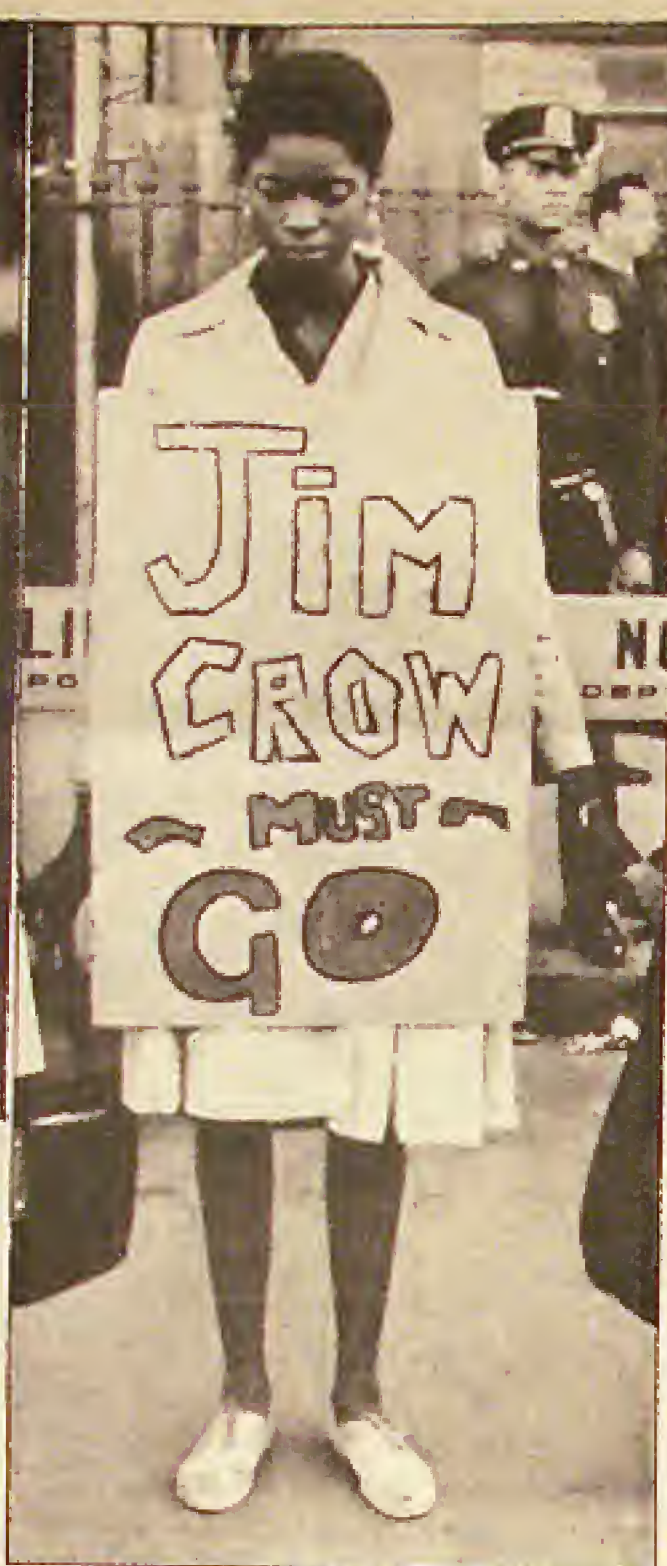 JiM
CROW
MUST
GO